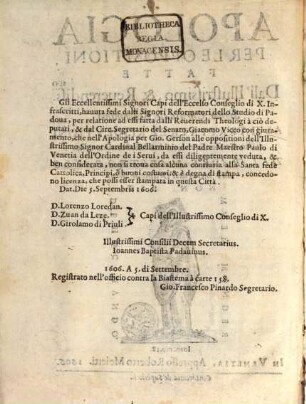 BIBLIOTHECA
REGIA
MONACENSIS.
Gli Eccellentissimi Signori Capi dell'Eccelso Conseglio di X.
Infrascritti, hauuta fede dalli Signori Reformatori dello Studio di Pa-
doua, per relatione ad essi fatta dalli Reuerendi Theologi à ciò de-
putati, & dal Circ. Segretario del Senato, Giouanno Vico con giura-
mento, che nell'Apologia per Gio. Gerson alle oppositioni dell'Illustris-
simo Signor Cardinal Bellarmino del Padre Maestro Paulo di
Venetia dell'Ordine de i Serui, da essi diligentemente veduta, &
ben considerata, non si troua cosa alcuna contraria alla Santa fede
Cattolica, Principi, ò buoni costumi, & è degna di stampa, conce-
dono licenza, che possi esser stampata in questa Città.
Dat. Die 5. Septembris 1606.
D. Lorenzo Loredan.
D. Zuan da Leze. Capi dell'Illustrissimo Conseglio di X.
D. Girolamo di Priuli
Illustrissimi Consilij Decem Secretarius.
Ioannes Baptista Paduauinus.
1606. A 5. di Settembre.
Registrato nell'officio contra la Biastema à carte 158.
Gio. Francesco Pinardo Segretario.